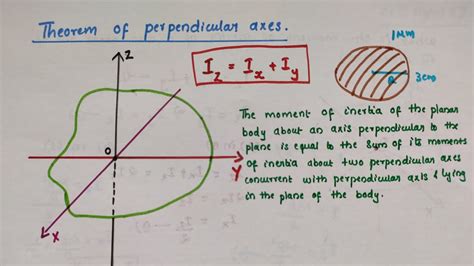 Theorem of perpendicular axes.
Z
I_z = I_x + I_y
1mm
R
3cm
O
Y
X
The moment of inertia of the planar
body about an axis perpendicular to the
plane is equal to the sum of its moments
of inertia about two perpendicular axes
concurrent with perpendicular axis & lying
in the plane of the body.